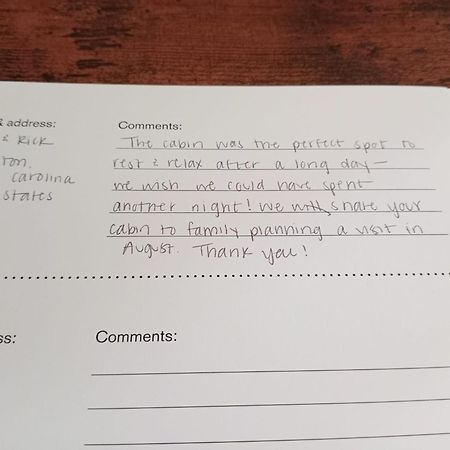 & address:
& RICK
ron,
Carolina
States
Comments:
The cabin was the perfect spot to
rest & relax after a long day—
we wish we could have spent
another night! We will share your
cabin to family planning a visit in
August. Thank you!
ss:
Comments: